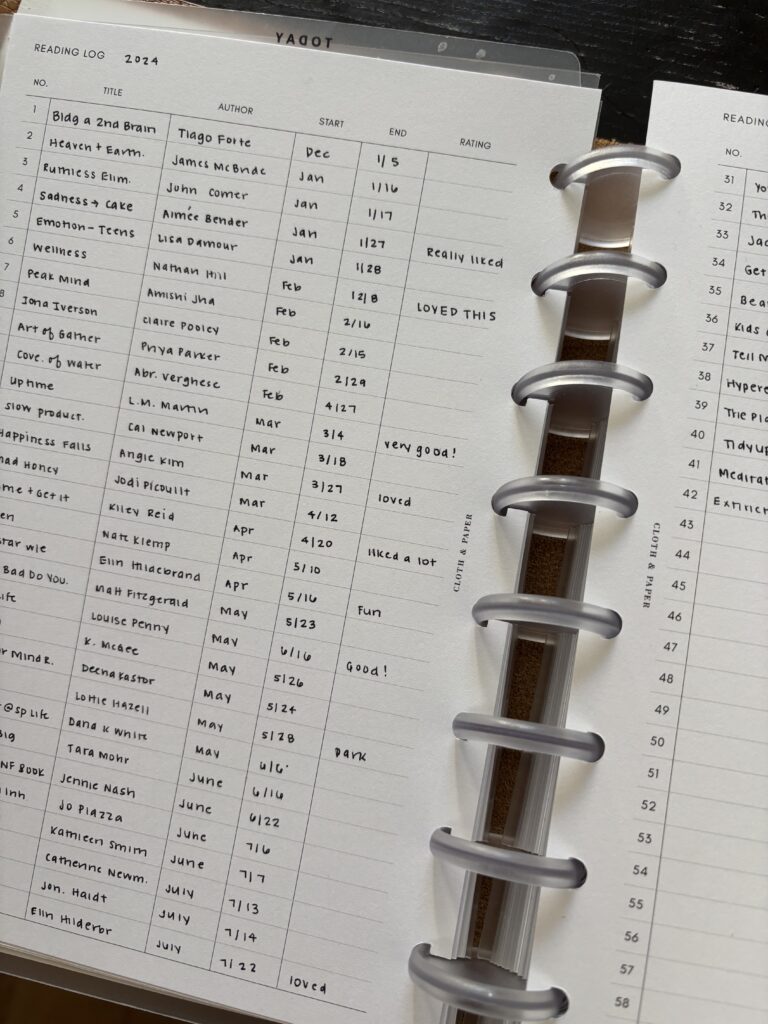 TODAY
READING LOG 2024
NO. TITLE AUTHOR START END RATING
1 Bldg a 2nd Brain Tiago Forte Dec 1/5
2 Heaven + Earth. James McBride Jan 1/16
3 Ruthless Elim. John Comer Jan 1/17
4 Sadness → Cake Aimée Bender Jan 1/27 Really liked
5 Emotion-Teens Lisa Damour Jan 1/28
6 Wellness Nathan Hill Feb 12/8 LOVED THIS
7 Peak Mind Amishi Jha Feb 2/16
8 Iona Iverson Claire Pooley Feb 2/15
Art of Gather Priya Parker Feb 2/29
Cove. of Water Abr. Verghese Feb 4/27
Uptime L.M. Martin Mar 3/4 very good!
Slow product. Cal Newport Mar 3/18
Happiness Falls Angie Kim Mar 3/27 loved
mad Honey Jodi Picoult Mar 4/12
me + Get It Kiley Reid Apr 4/20 liked a lot
en Nate Klemp Apr 5/10
Elin Hilderbrand Apr 5/16 Fun
Bad Do You. Matt Fitzgerald May 5/23
ife Louise Penny May 6/16 Good!
K. McGee May 5/26
r Mind R. Deena Kastor May 5/24
Lottie Hazell May 5/28 Dark
@sp Life Dana K White May 6/6
Big Tara Mohr June 6/16
NF Book Jennie Nash June 6/22
Inh Jo Piazza June 7/6
Kathleen Smith June 7/7
Catherine Newm. July 7/13
Jon. Haidt July 7/14
Elin Hilderbr July 7/22 loved
CLOTH & PAPER
CLOTH & PAPER
READING
NO.
31 Yo
32 Th
33 Jac
34 Get
35 Bea
36 Kids
37 Tell M
38 Hypere
39 The Pla
40 Tidy up
41 Meditat
42 Extinct
43
44
45
46
47
48
49
50
51
52
53
54
55
56
57
58